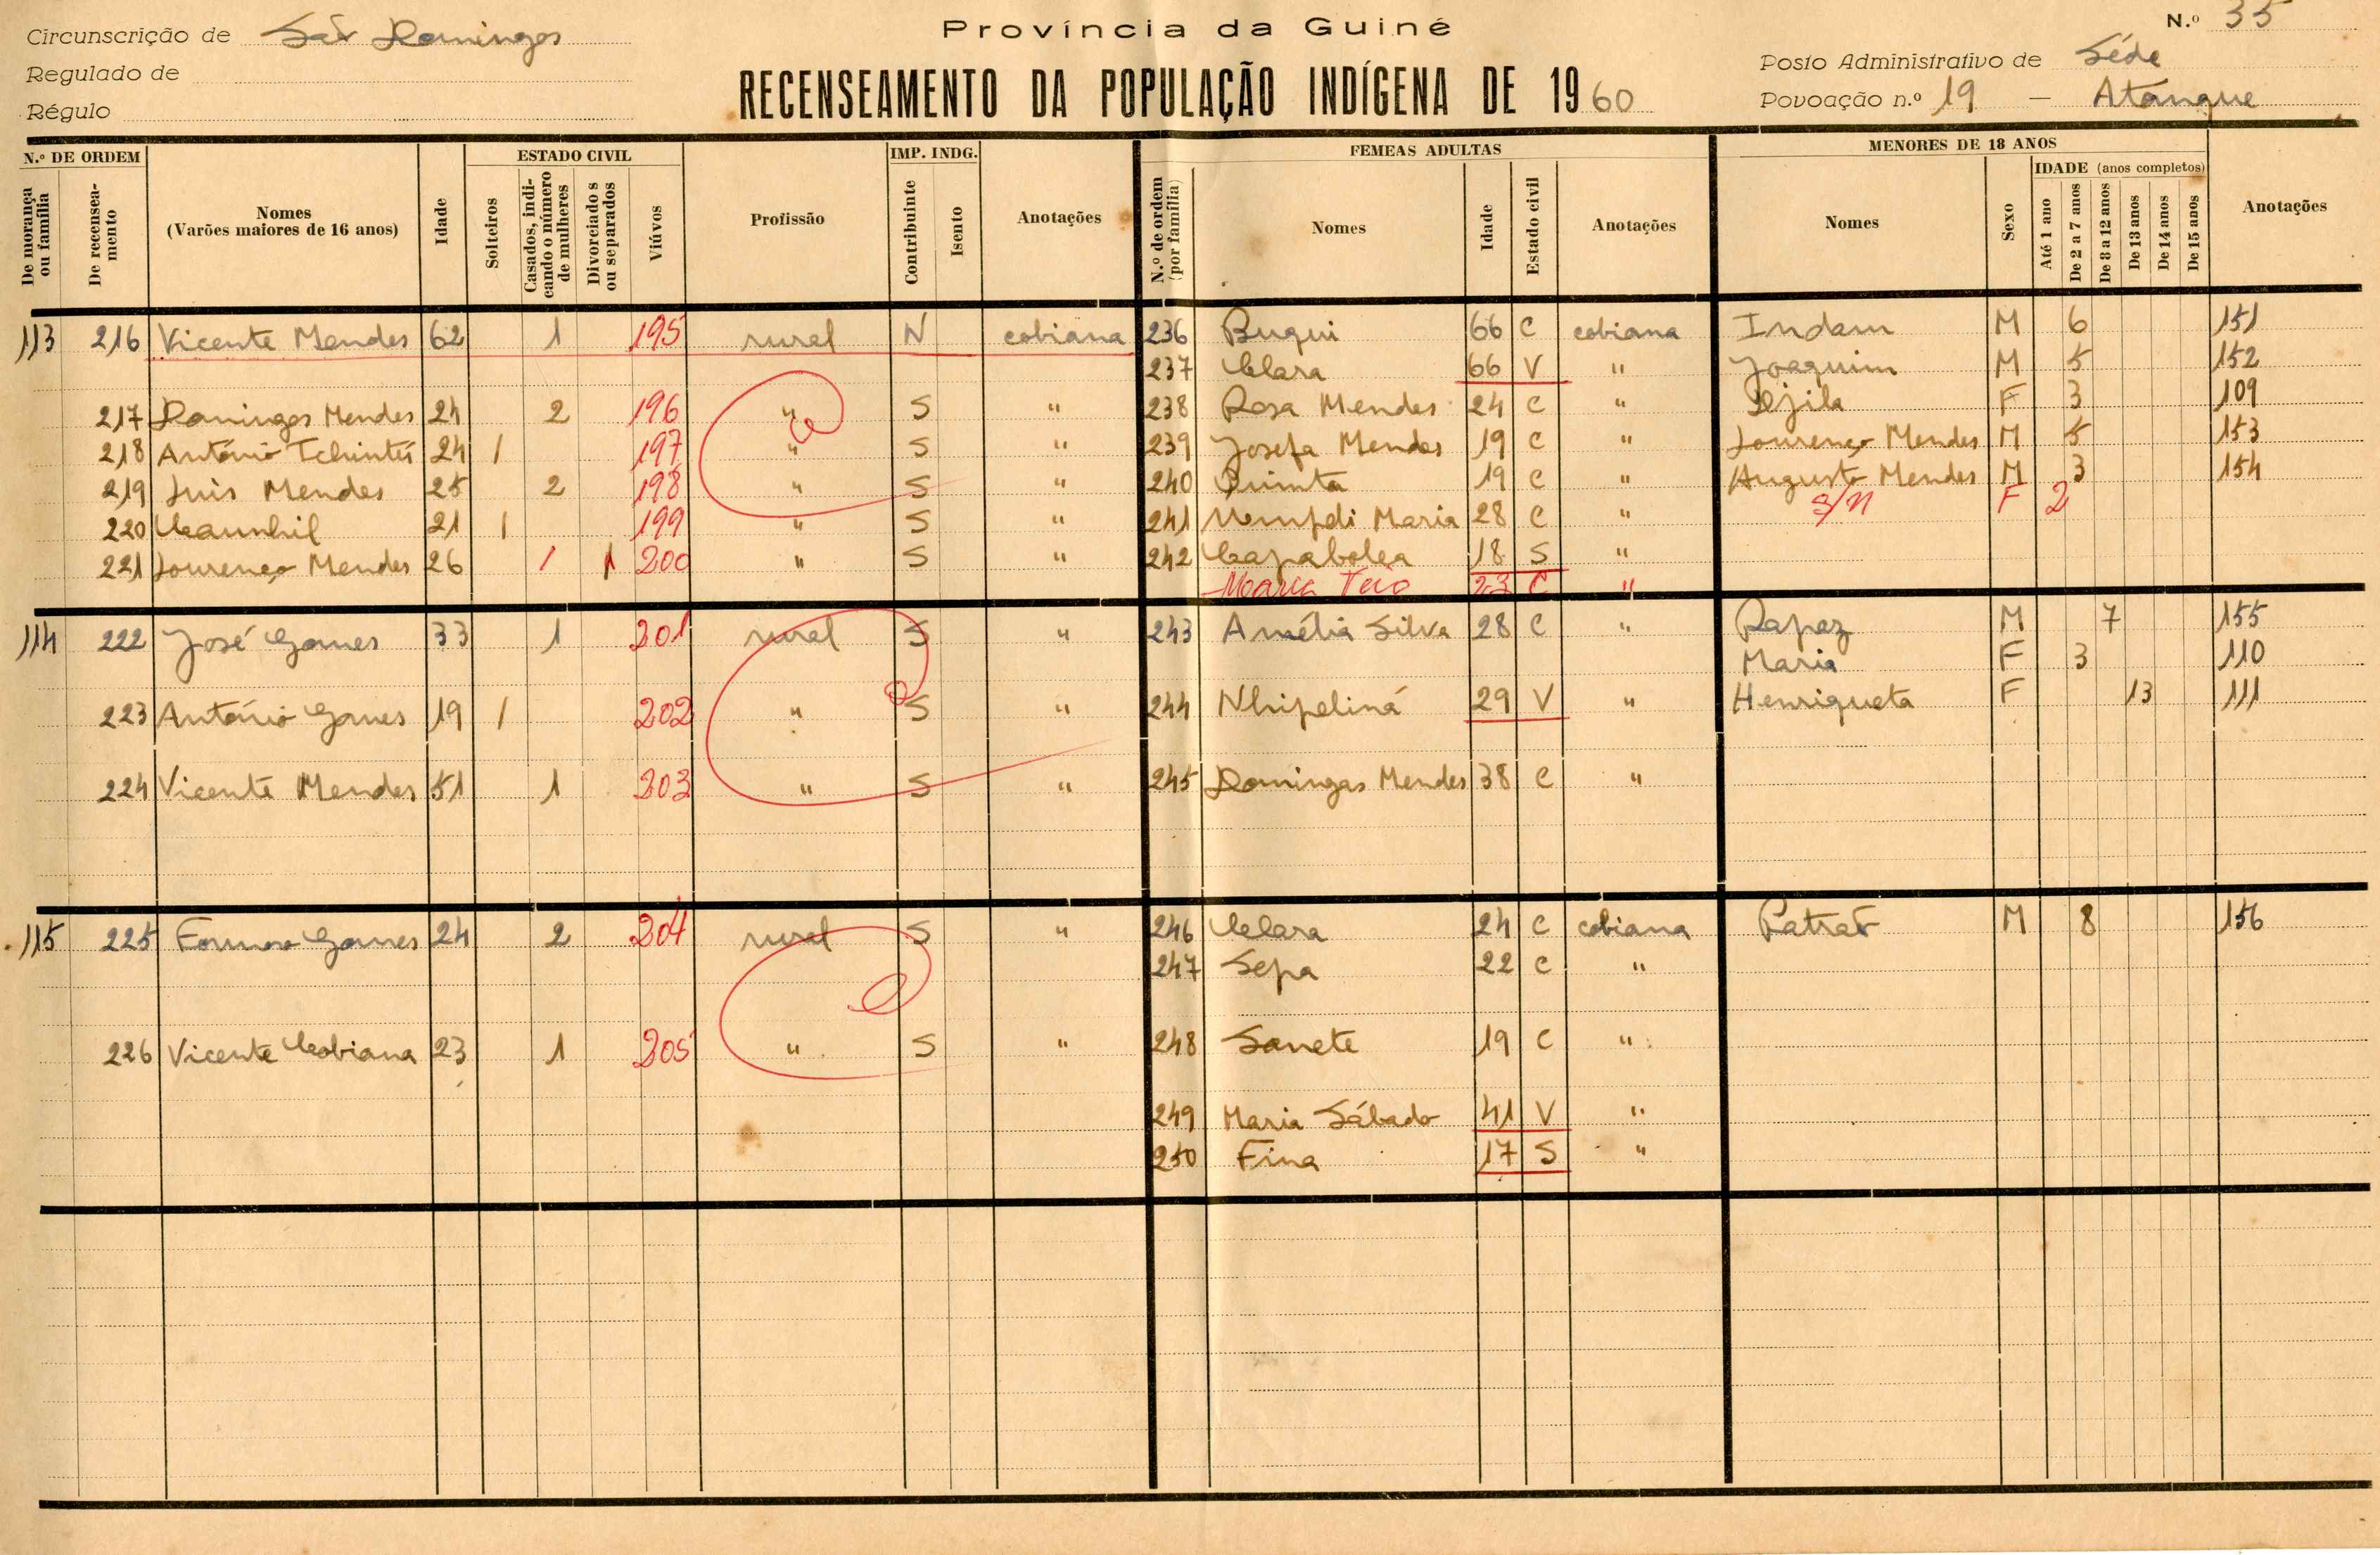 Província da Guiné
N.º 35
Circunscrição de São Domingos
Regulado de
Régulo
RECENSEAMENTO DA POPULAÇÃO INDÍGENA DE 1960
Posto Administrativo de Séde
Povoação n.º 19 — Atangue
N.º DE ORDEM ESTADO CIVIL IMP. INDG. FEMEAS ADULTAS MENORES DE 18 ANOS
De morança ou família De recenseamento Nomes (Varões maiores de 16 anos) Idade Solteiros Casados, indicando o número de mulheres Divorciados ou separados Viúvos Profissão Contribuinte Isento Anotações N.º de ordem (por família) Nomes Idade Estado civil Anotações Nomes Sexo IDADE (anos completos) Até 1 ano De 2 a 7 anos De 8 a 12 anos De 13 anos De 14 anos De 15 anos Anotações
113 216 Vicente Mendes 62 1 195 rural N cobiana 236 Buqui 66 C cobiana Indam M 6 151
237 Clara 66 V " Joaquim M 5 152
217 Domingos Mendes 24 2 196 " S " 238 Rosa Mendes 24 C " F 3 109
218 António Tchintú 24 1 197 " S " 239 Josefa Mendes 19 C " Lourenço Mendes M 5 153
219 Luis Mendes 25 2 198 " S " 240 Quinta 19 C " Augusto Mendes M 3 154
220 Caunhil 21 1 199 " S " 241 Maria 28 C " S/N F 2
221 Lourenço Mendes 26 1 1 200 " S " 242 Capabolea 18 S "
Maria 23 C "
114 222 José Gomes 33 1 201 rural S " 243 Amélia Silva 28 C " Rapaz M 7 155
Maria F 3 110
223 António Gomes 19 1 202 " S " 244 Nhipeliná 29 V " Henriqueta F 13 111
224 Vicente Mendes 51 1 203 " S " 245 Domingas Mendes 38 C "
115 225 Formoso Gomes 24 2 204 rural S " 246 Clara 24 C cobiana Patrão M 8 156
247 Sepa 22 C "
226 Vicente Cobiana 23 1 205 " S " 248 Sanete 19 C "
249 Maria Sábado 41 V "
250 Fina 17 S "